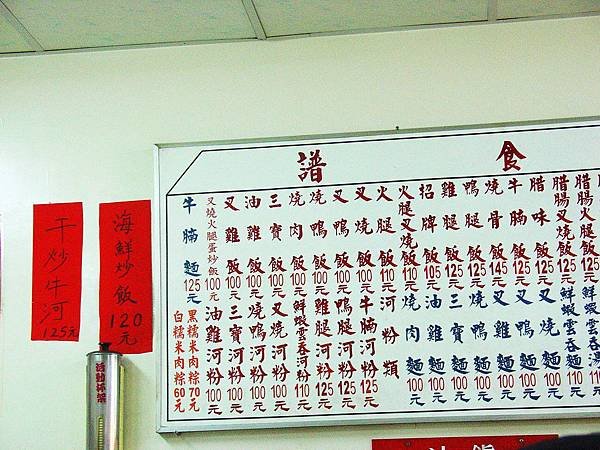 食譜
腊腸火腿飯125元
腊腸叉燒飯125元
腊味飯125元
牛腩飯125元
燒骨飯145元
鴨腿飯125元
雞腿飯125元
招牌飯105元
火腿叉燒飯110元
火腿飯110元
叉燒飯100元
叉鴨飯100元
燒鴨飯100元
燒肉飯100元
三寶飯100元
油雞飯100元
叉雞飯100元
叉燒火腿蛋炒飯100元
牛腩麵125元
鮮蝦雲吞湯110
鮮蝦雲吞麵110元
叉燒麵100元
叉雞麵100元
燒鴨麵100元
三寶麵100元
油雞麵100元
燒肉麵100元
河粉類
牛腩河粉125元
鴨腿河粉125元
雞腿河粉125元
鮮蝦雲吞河粉110元
叉燒河粉100元
燒鴨河粉100元
三寶河粉100元
油雞河粉100元
黑糯米肉粽70元
白糯米肉粽60元
海鮮炒飯120元
干炒牛河125元
活動杯架